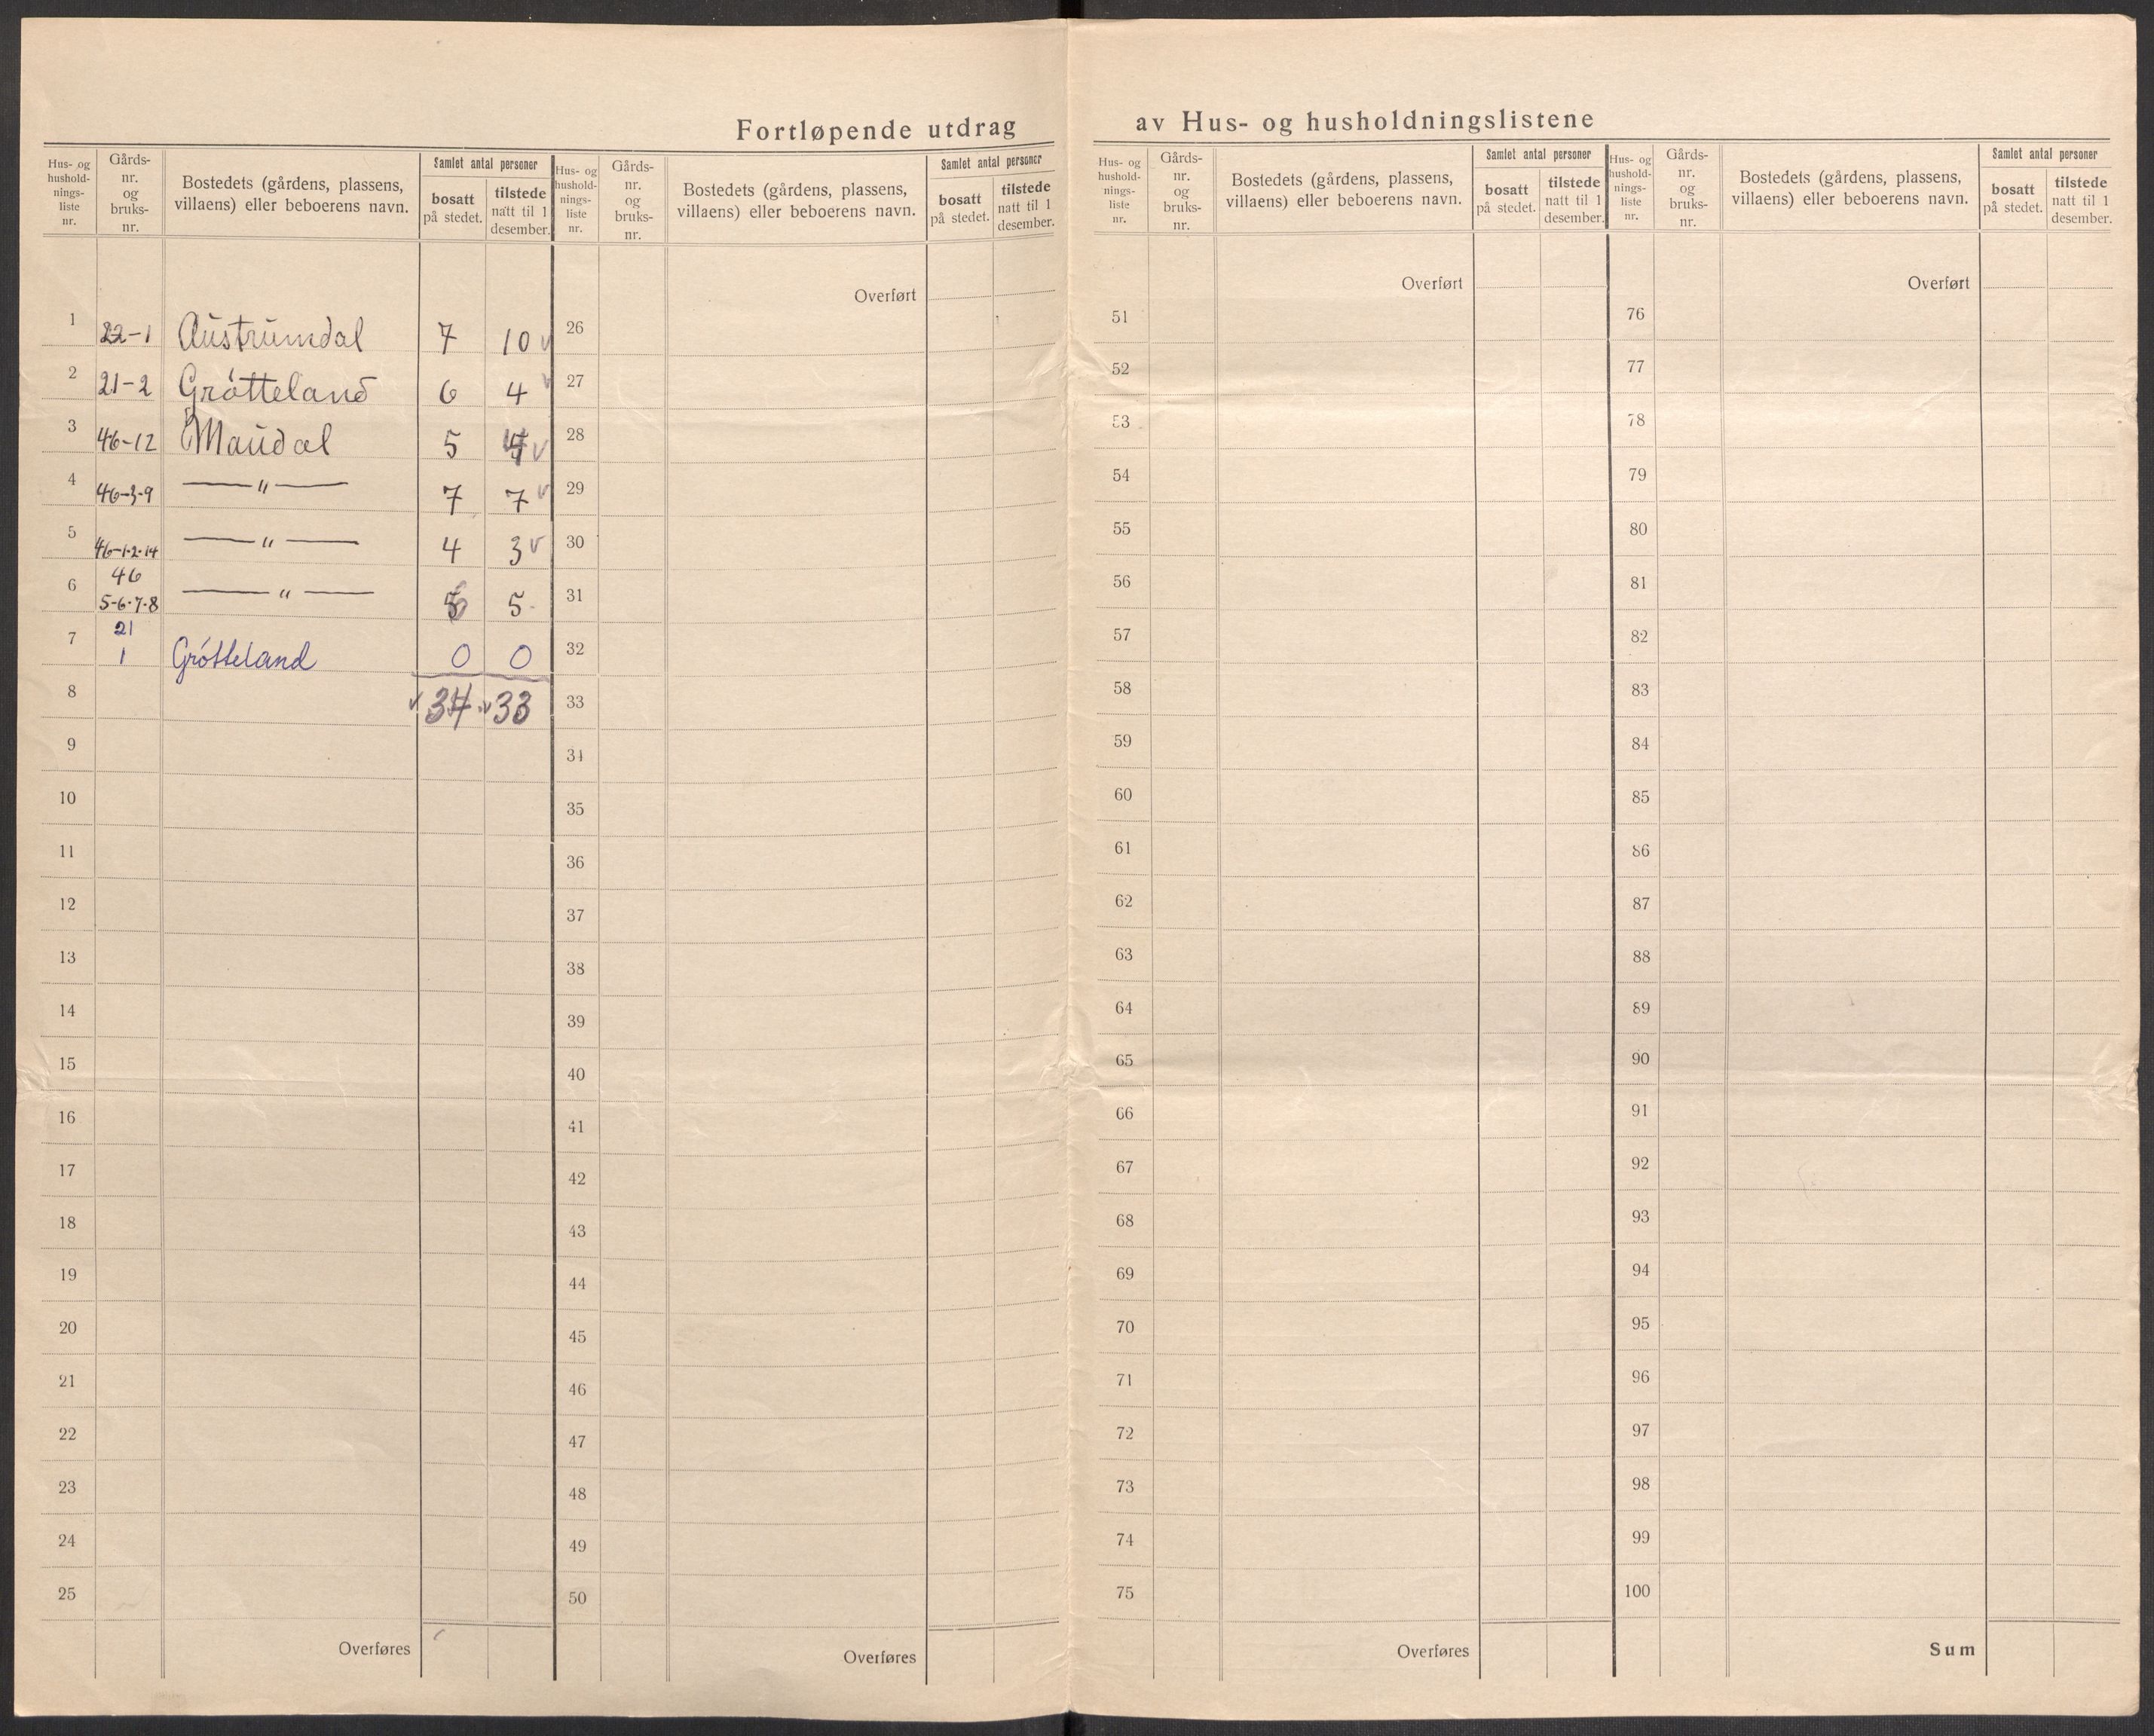 Fortløpende utdrag av Hus- og husholdningslistene
Hus- og hushold-nings-liste nr. Gårds-nr. og bruks-nr. Bostedets (gårdens, plassens, villaens) eller beboerens navn. Samlet antal personer bosatt på stedet. tilstede natt til 1 desember.
1 22-1 Austrumdal 7 10 v
2 21-2 Gråtteland 6 4 v
3 46-12 Maudal 5 4 v
4 46-3-9 —"— 7 7 v
5 46-1-2-14 —"— 4 3 v
6 46 5-6-7-8 —"— 5 5
7 21 1 Gråtteland 0 0
8 v 34 v 33
9
10
11
12
13
14
15
16
17
18
19
20
21
22
23
24
25
Overføres
Hus- og hushold-nings-liste nr. Gårds-nr. og bruks-nr. Bostedets (gårdens, plassens, villaens) eller beboerens navn. Samlet antal personer bosatt på stedet. tilstede natt til 1 desember.
Overført
26
27
28
29
30
31
32
33
34
35
36
37
38
39
40
41
42
43
44
45
46
47
48
49
50
Overføres
Hus- og hushold-nings-liste nr. Gårds-nr. og bruks-nr. Bostedets (gårdens, plassens, villaens) eller beboerens navn. Samlet antal personer bosatt på stedet. tilstede natt til 1 desember.
Overført
51
52
53
54
55
56
57
58
59
60
61
62
63
64
65
66
67
68
69
70
71
72
73
74
75
Overføres
Hus- og hushold-nings-liste nr. Gårds-nr. og bruks-nr. Bostedets (gårdens, plassens, villaens) eller beboerens navn. Samlet antal personer bosatt på stedet. tilstede natt til 1 desember.
Overført
76
77
78
79
80
81
82
83
84
85
86
87
88
89
90
91
92
93
94
95
96
97
98
99
100
Sum